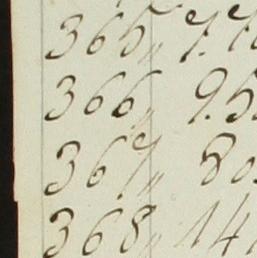 365 〃 7.7
366 〃 9.5
367 〃 80
368 〃 14